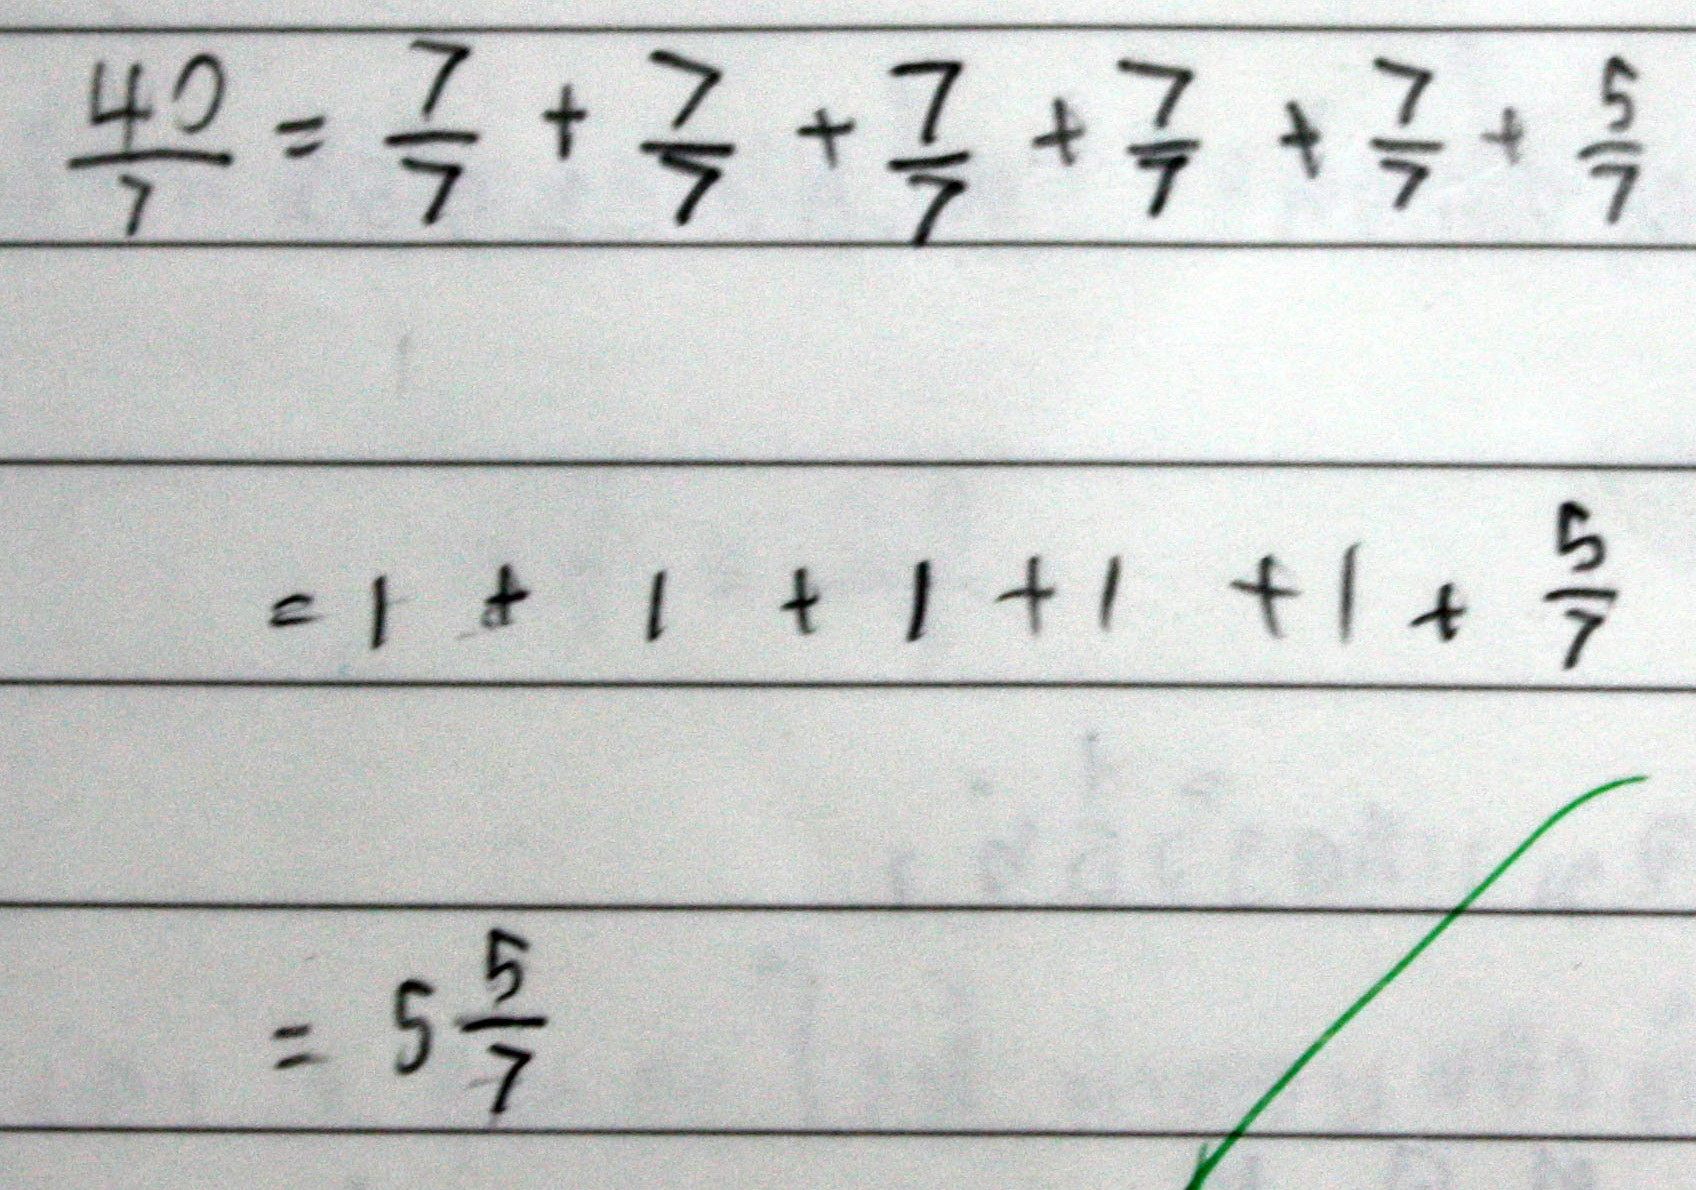 40/7 = 7/7 + 7/7 + 7/7 + 7/7 + 7/7 + 5/7
= 1 + 1 + 1 + 1 + 1 + 5/7
= 5 5/7